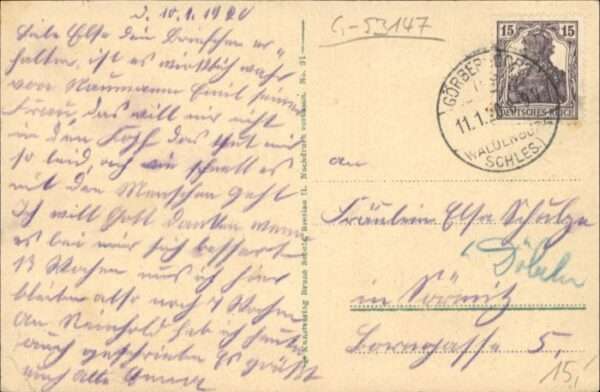 D. 10.1.1920
Liebe Else dein Briefchen er-
halten, ist es wirklich wahr
von Naumann Emil seiner
Frau, das will mir nicht
in den Kopf das thut mir
so leid, ach wie schnell es
mit den Menschen geht
Ich will Gott danken wenn
es bei mir sich bessert
13 Wochen muß ich hier
bleiben also noch 7 Wochen
An Reinhold hab ich heute
auch geschrieben Es grüßt
euch alle Anna
Kunstverlag Bruno Scholz, Breslau II. Nachdruck verboten. No. 91
G-53147
15 15
DEUTSCHES REICH
GÖRBERSDORF
11.1.
WALDENBURG
SCHLES.
an
Fräulein Else Schulze
Döbeln
in Sörmitz
Borngasse 5,
15,-